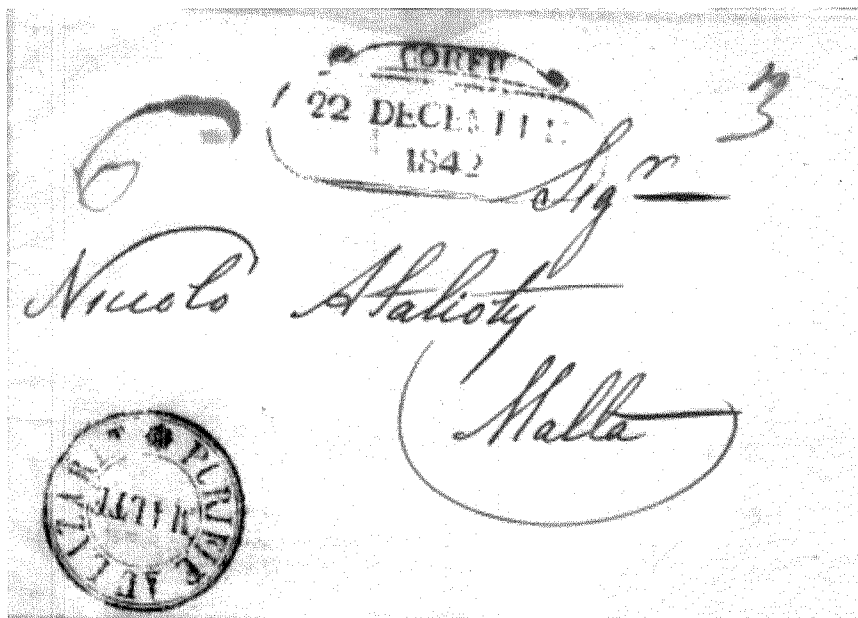 CORFU
3
22 DECEMBE
1842
6
Sigr
Niccolò
Malta
PURIFIÉ AU LAZARET
MALTE